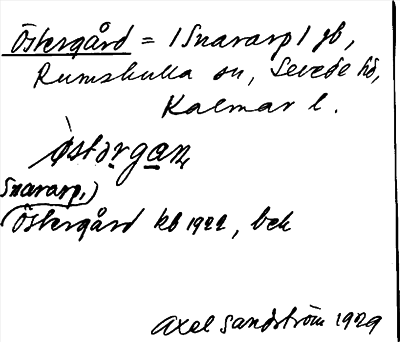 Östergård = /Snararp/ gb,
Rumskulla sn, Sevede hd,
Kalmar l.
östərgan,
Snararp,)
Östergård kb 1922, bek
Axel Sandström 1929